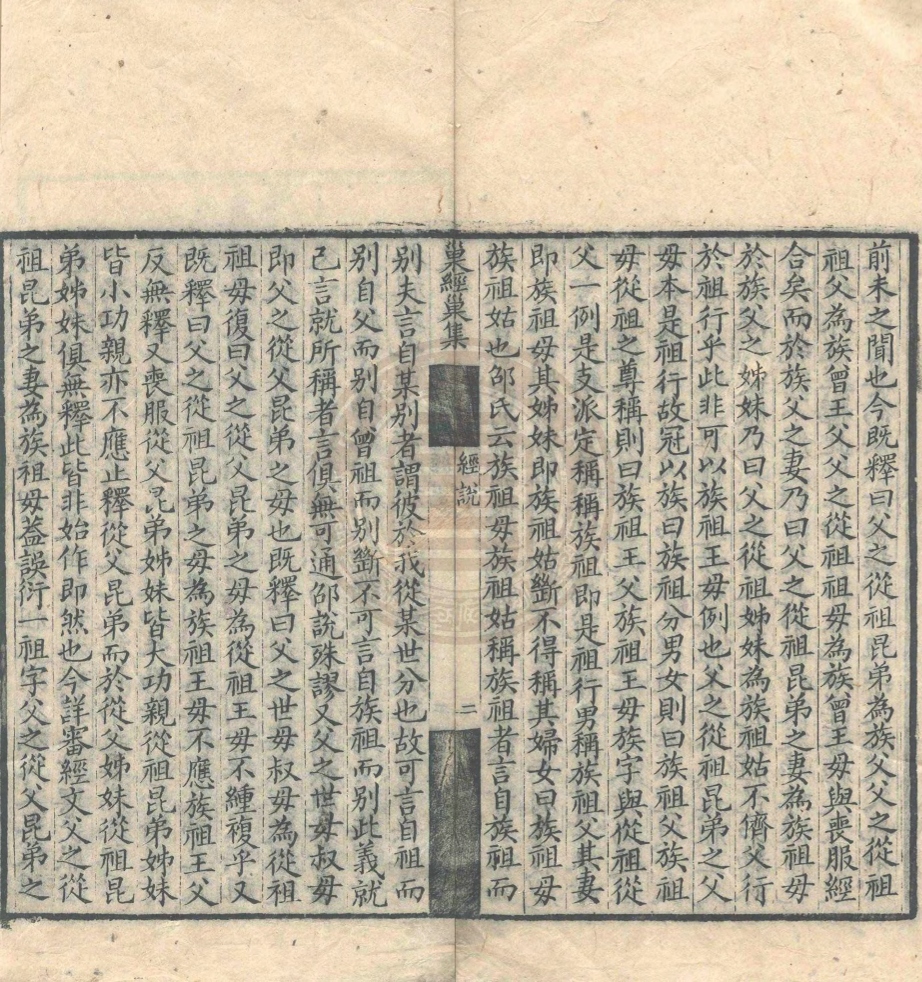 前未之聞也今既釋曰父之從祖昆弟為族父父之從祖
祖父為族曾王父父之從祖祖毋為族曾王毋與喪服經
合矣而於族父之妻乃曰父之從祖昆弟之妻為族祖毋
於族父之姊妹乃曰父之從祖姊妹為族祖姑不儕父行
於祖行乎此非可以族祖王毋例也父之從祖昆弟之父
毋本是祖行故冠以族曰族祖分男女則曰族祖父族祖
毋從祖之尊稱則曰族祖王父族祖王毋族字與從祖從
父一例是支派定稱稱族祖即是祖行男稱族祖父其妻
即族祖毋其姊妹即族祖姑斷不得稱其婦女曰族祖毋
族祖姑也邵氏云族祖毋族祖姑稱族祖者言自族祖而
巢經巢集
經說
二
別夫言自某別者謂彼於我從某世分也故可言自祖而
別自父而別自曾祖而別斷不可言自族祖而別此義就
己言就所稱者言俱無可通邵說殊謬又父之世毋叔毋
即父之從父昆弟之毋也既釋曰父之世毋叔毋為從祖
祖毋復曰父之從父昆弟之毋為從祖王毋不緟複乎又
既釋曰父之從祖昆弟之毋為族祖王毋不應族祖王父
反無釋又喪服從父昆弟姊妹皆大功親從祖昆弟姊妹
皆小功親亦不應止釋從父昆弟而於從父姊妹從祖昆
弟姊妹俱無釋此皆非始作即然也今詳審經文父之從
祖昆弟之妻為族祖毋葢誤衍一祖字父之從父昆弟之